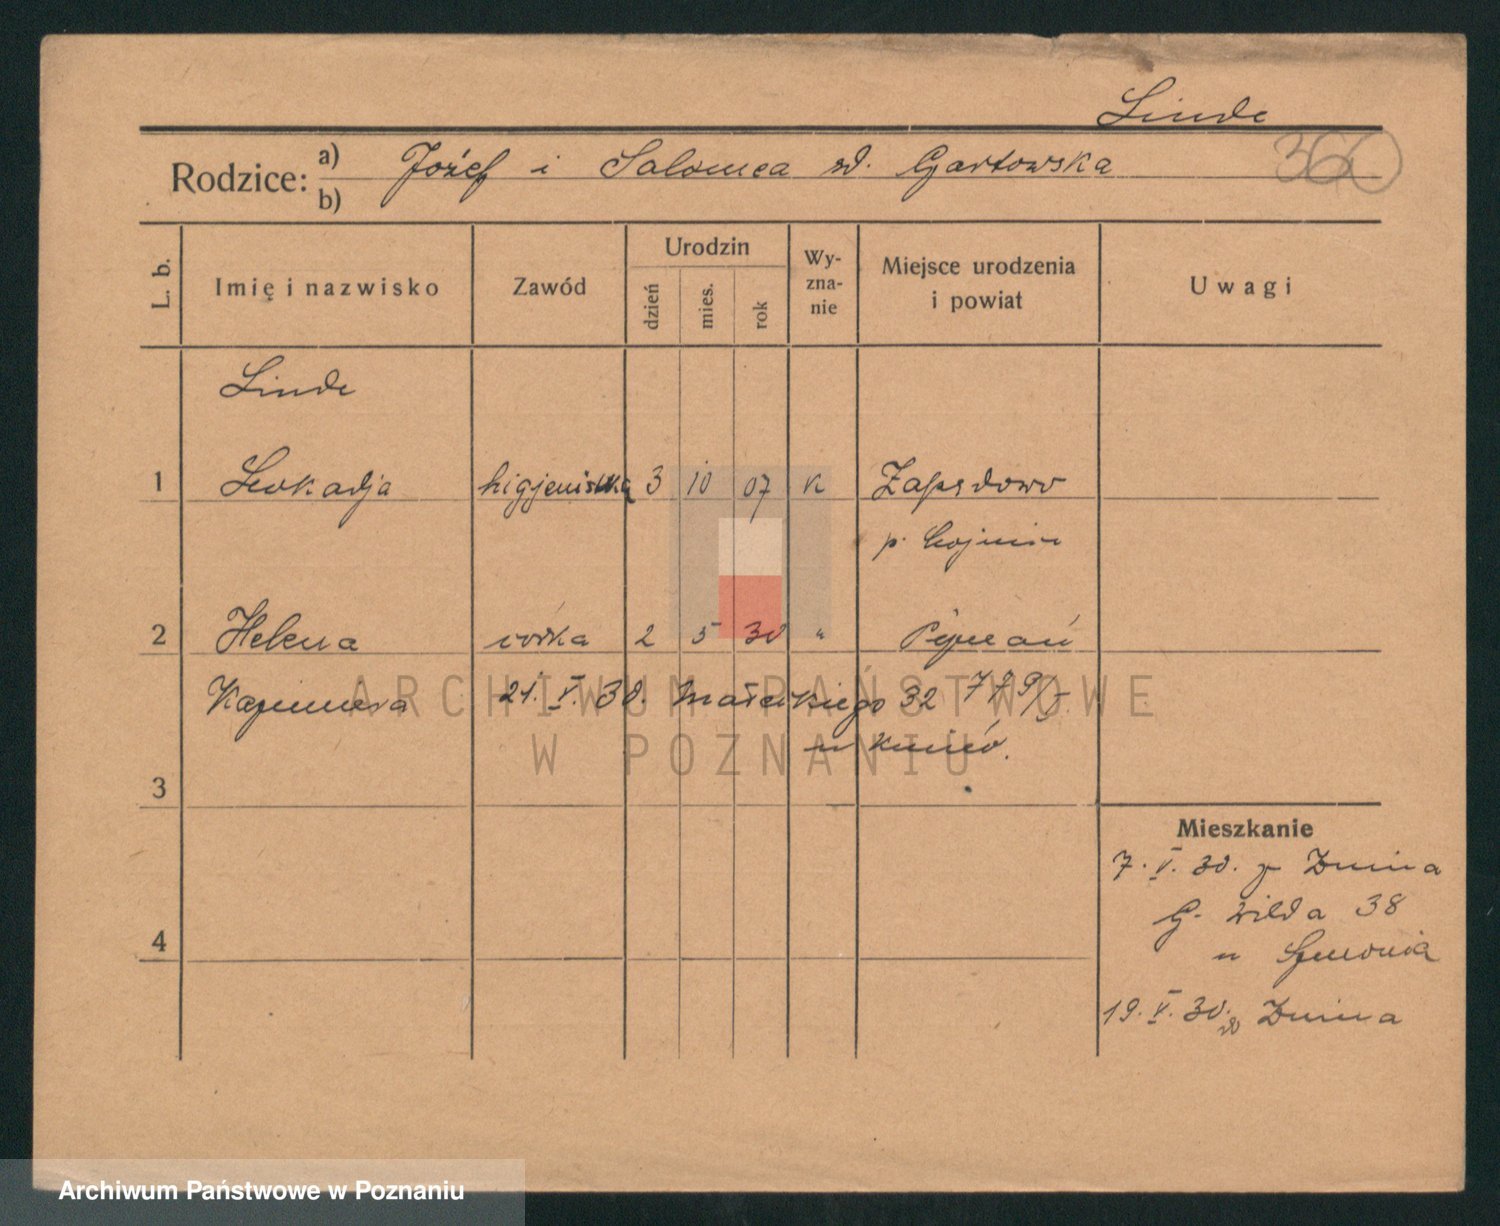 Linde
366
Rodzice: a) Józef i Salomea zd. Gartowska
b)
L. b.
Imię i nazwisko
Zawód
Urodzin
dzień
mies.
rok
Wy-
zna-
nie
Miejsce urodzenia
i powiat
Uwagi
Linde
1 Leokadja higjenistka 3 10 07 k
p.
2 Helena córka 2 5 30 " Poznań
Kazimiera 21. V. 30. Małeckiego 32
u
3
Mieszkanie
7. V. 30. z Żnina
G. Wilda 38
u
4
19. V. 30. do Żnina
ARCHIWUM PAŃSTWOWE
W POZNANIU
Archiwum Państwowe w Poznaniu